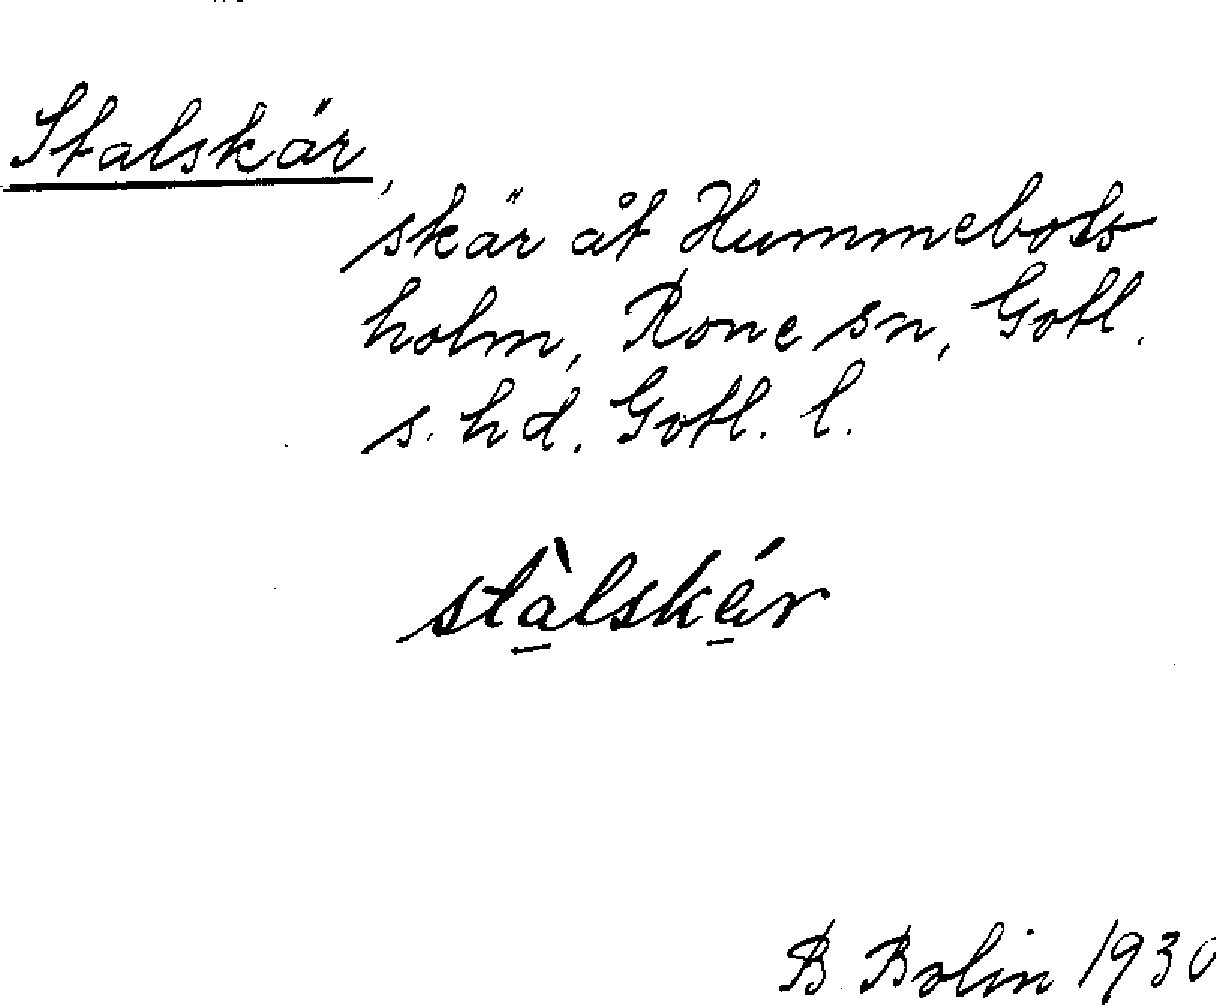 Stalskär,
skär åt Hummebots
holm, Rone sn, Gotl.
s. hd. Gotl. l.
stàlskér
B Bolin 1930